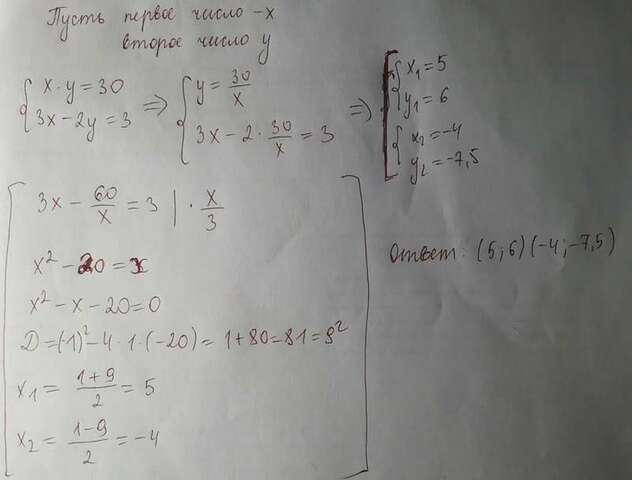 Пусть первое число - x
второе число y
{ x · y = 30
3x - 2y = 3
=> { y = 30/x
3x - 2 · 30/x = 3
=> [ { x₁ = 5
y₁ = 6
{ x₂ = -4
y₂ = -7,5
[ 3x - 60/x = 3 | · x/3
x² - 20 = x
x² - x - 20 = 0
D = (-1)² - 4 · 1 · (-20) = 1 + 80 = 81 = 9²
x₁ = (1+9)/2 = 5
x₂ = (1-9)/2 = -4 ]
Ответ: (5; 6) (-4; -7,5)